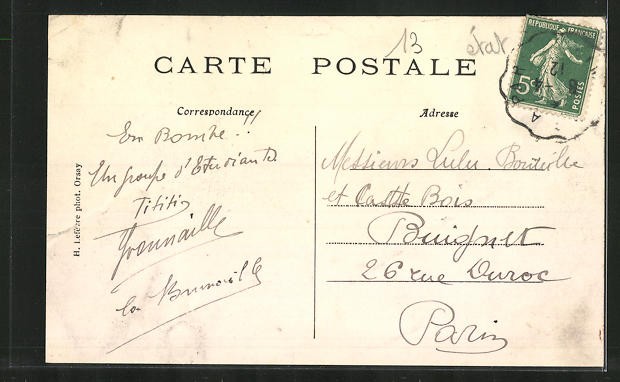 13
état
CARTE POSTALE
REPUBLIQUE FRANÇAISE
5c
POSTES
12
Correspondance
Adresse
En Bombe..
Un groupe d'Etudiants
Tititis
la
Messieurs Lulu Bouteille
et Bois
Buignet
26 rue Duroc
Paris
H. Lefèvre phot. Orsay